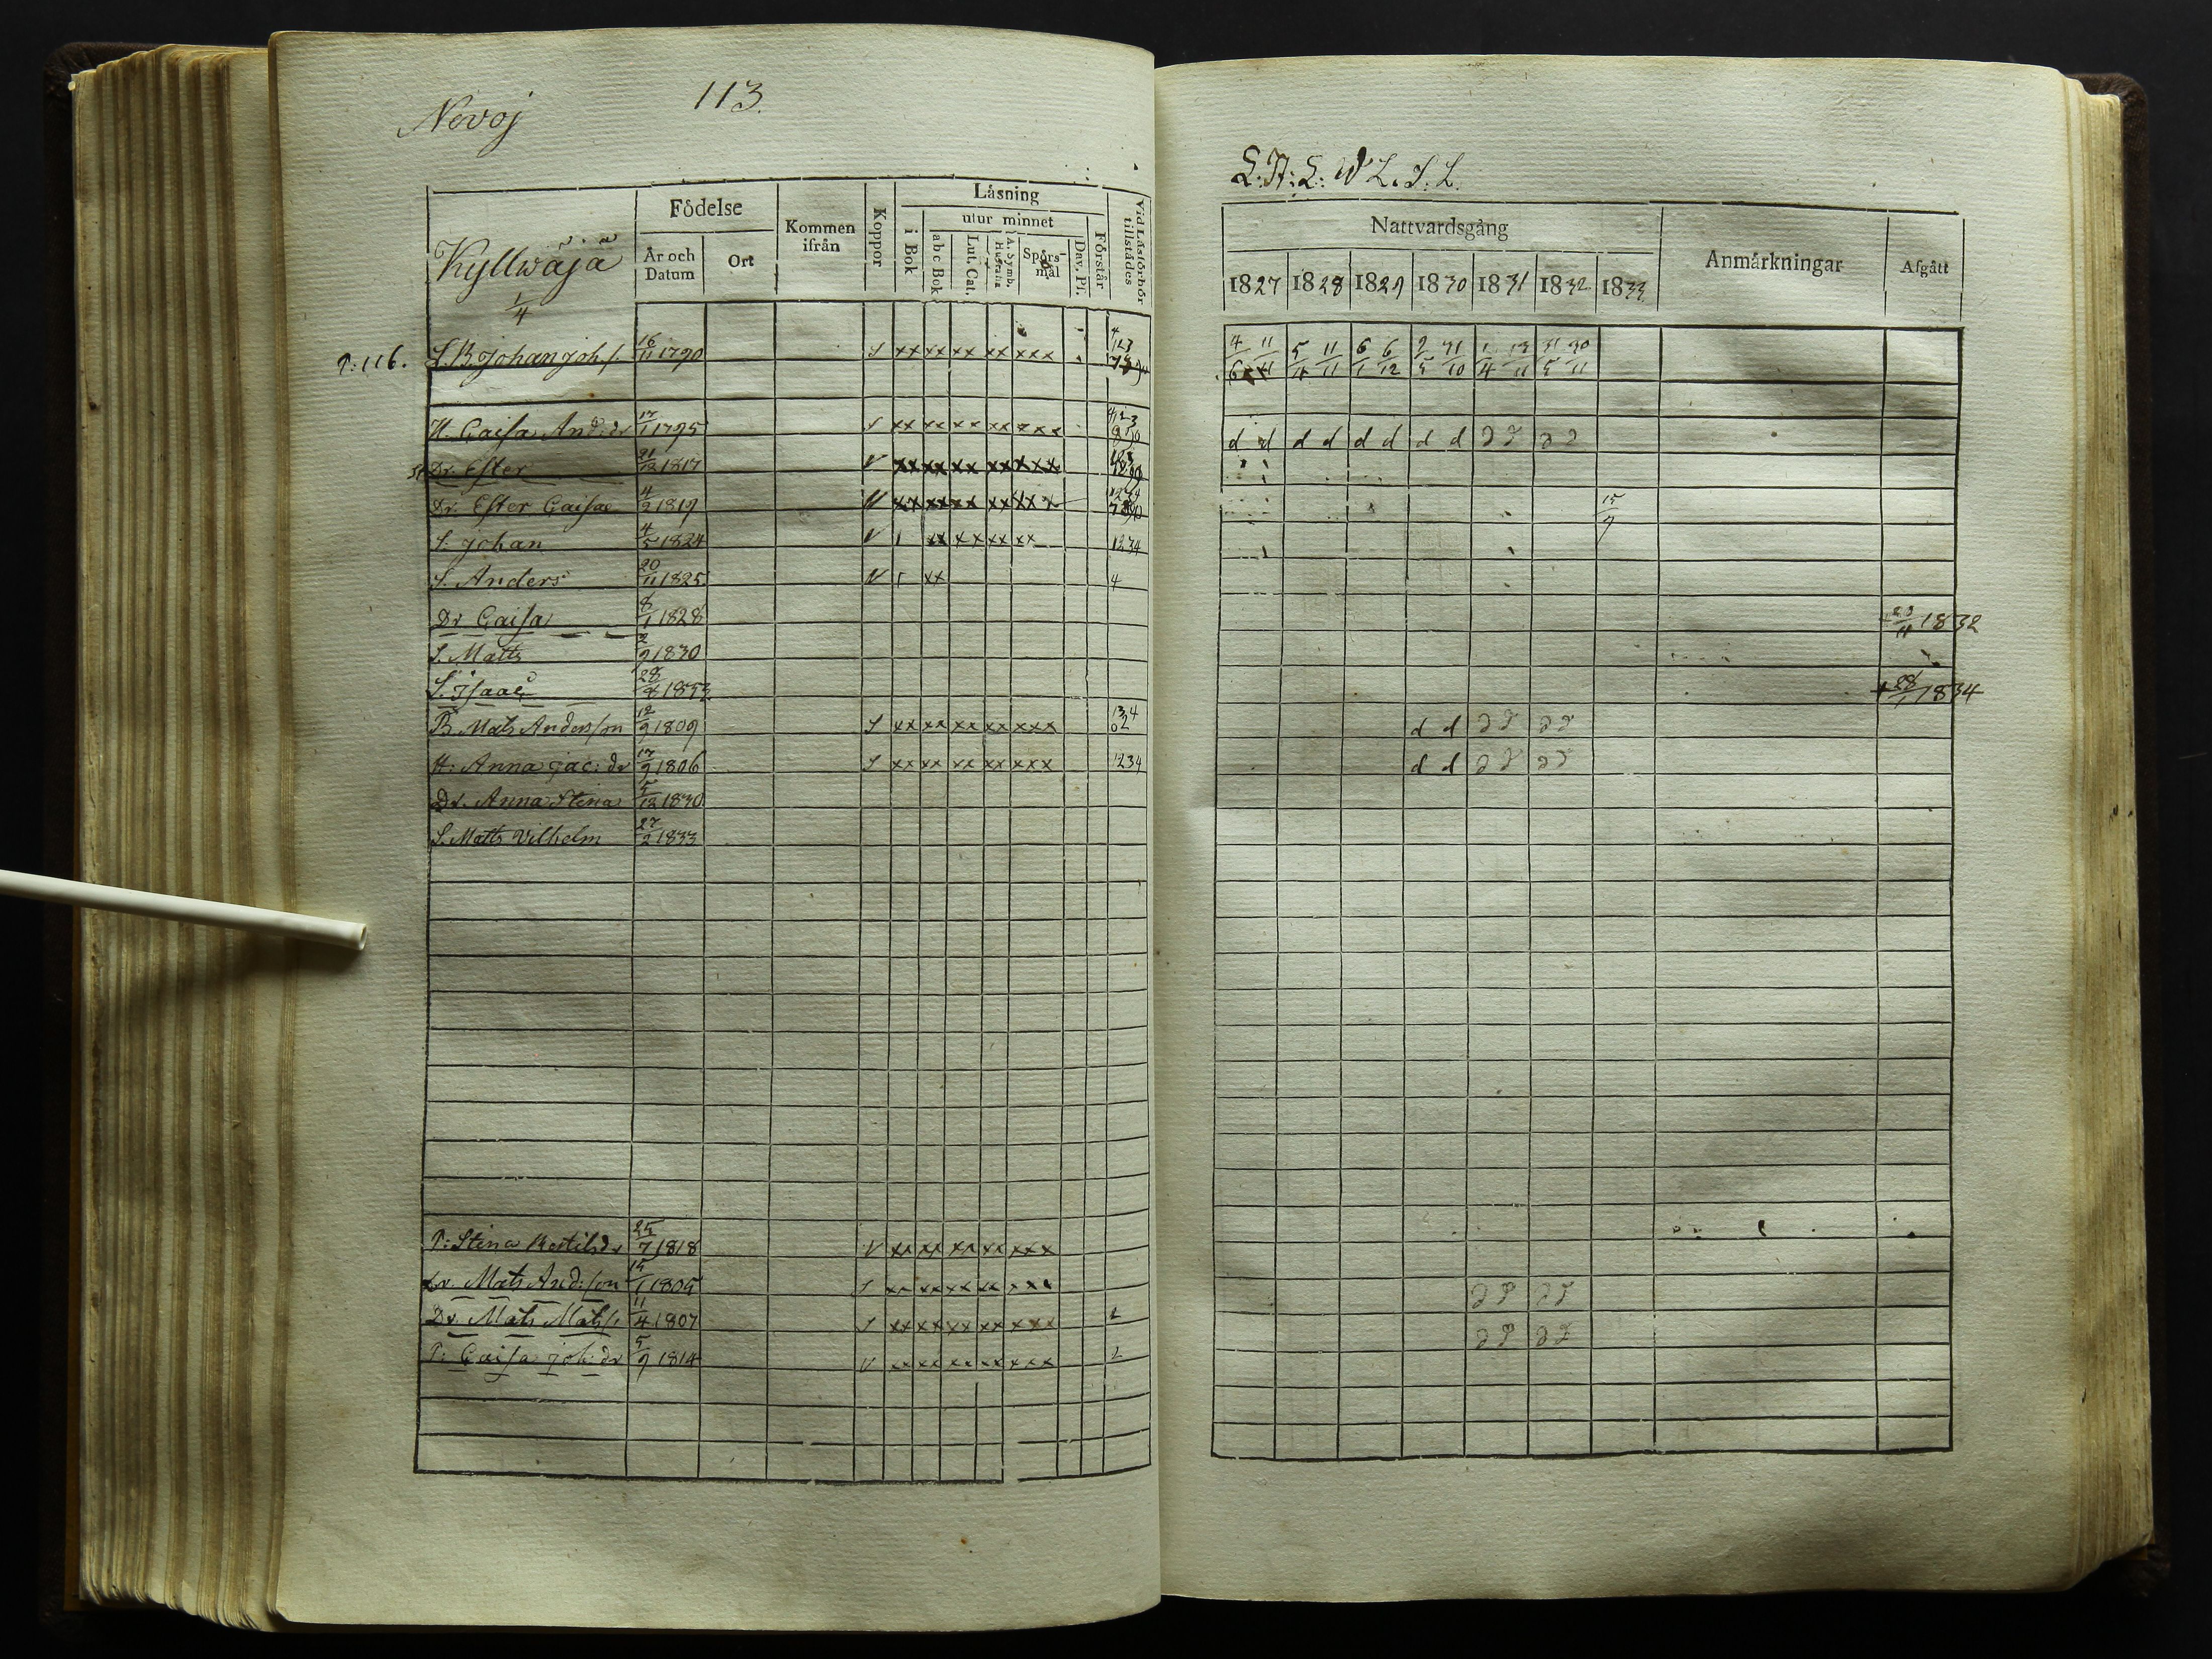 Nevoj
113.
Kyllwäjä
1/4
Födelse
År och Datum
Ort
Kommen ifrån
Koppor
Läsning
i Bok
utur minnet
abc Bok
Lut. Cat.
A. Symb. Hustafla
Spörsmål
Dav. Ps.
Förstår
Vid Läsförhör tillstädes
P: 116. L.B. Johan Joh s. 16/11 1790 S xx xx xx xx xxx
H. Caisa And: dr 17/1 1795 S xx xx xx xx xxx
Dr. Ester 21/12 1817 V xx xx xx xx xxx
Dr. Ester Caisa 4/2 1819 V xx xx xx xx xxx
S. Johan 4/5 1824 V 1 xx xx xx xx 1234
S. Anders 20/11 1825 V 1 xx 4
Dr Caisa 8/1 1828
S. Matts 2/9 1830
S. Isaac 28/8 1833
B. Mats Andersson 12/9 1809 S xx xx xx xx xxx
H. Anna Jac: dr 17/9 1806 S xx xx xx xx xxx 1234
Dr. Anna Stina 5/12 1830
S. Matts Vilhelm 27/2 1833
P: Stina Bertilsdr 25/7 1818 V xx xx xx xx xxx
Dr. Mats And:son 15/1 1805 S xx xx xx xx xxx
Dr. Mats Mats s. 11/4 1807 S xx xx xx xx xxx 2
P: Caisa Joh: dr 5/9 1814 V xx xx xx xx xxx 2
L: A: L: W L. S. L.
Nattvardsgång
Anmärkningar
Afgått
1827 1828 1829 1830 1831 1832 1833
4/6 11/11 5/4 11/11 6/1 6/12 2/5 31/10 1/4 13/11 31/5 30/11
d d d d d d d d d d d d
15/9
+ 23/11 1832
+ 28/1 1834
d d d d d d
d d d d d d
d d d d
d d d d